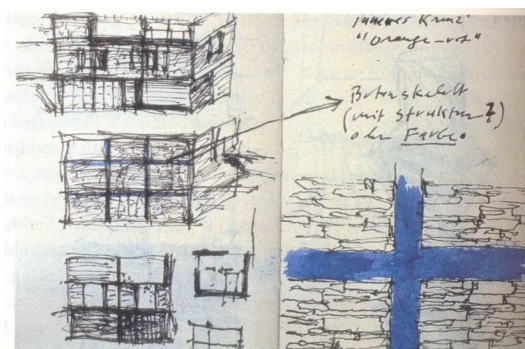 inneres Kreuz:
"Orange-rot"
Betonskelett
(mit Struktur?)
oder Farbe.